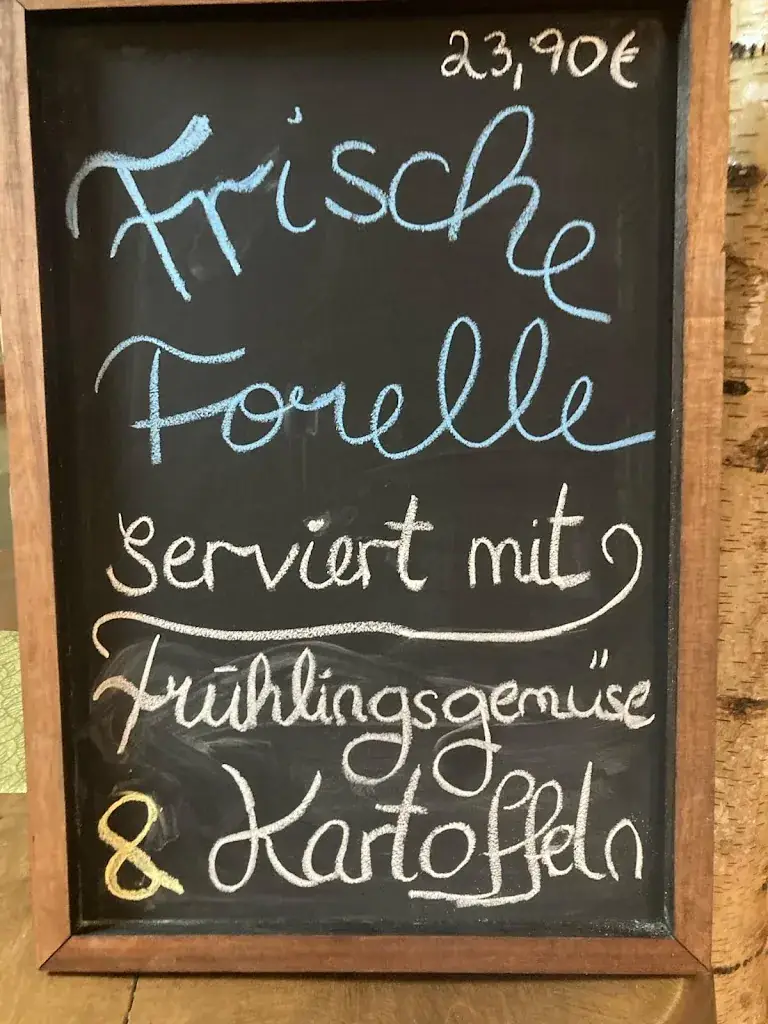 23,90€
Frische
Forelle
serviert mit
Frühlingsgemüse
& Kartoffeln